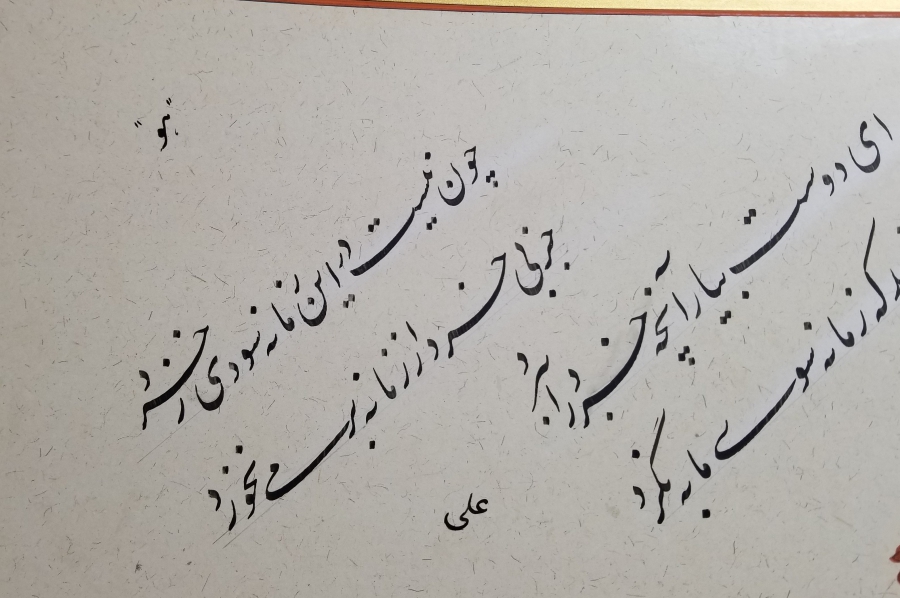 "هو"
چون نیست در این زمانه سودی ز خرد
جز بی خرد از زمانه بر می نخورد
ای دوست بیار آنچه خرد را ببرد
که زمانه سوی ما به نگرد
علی